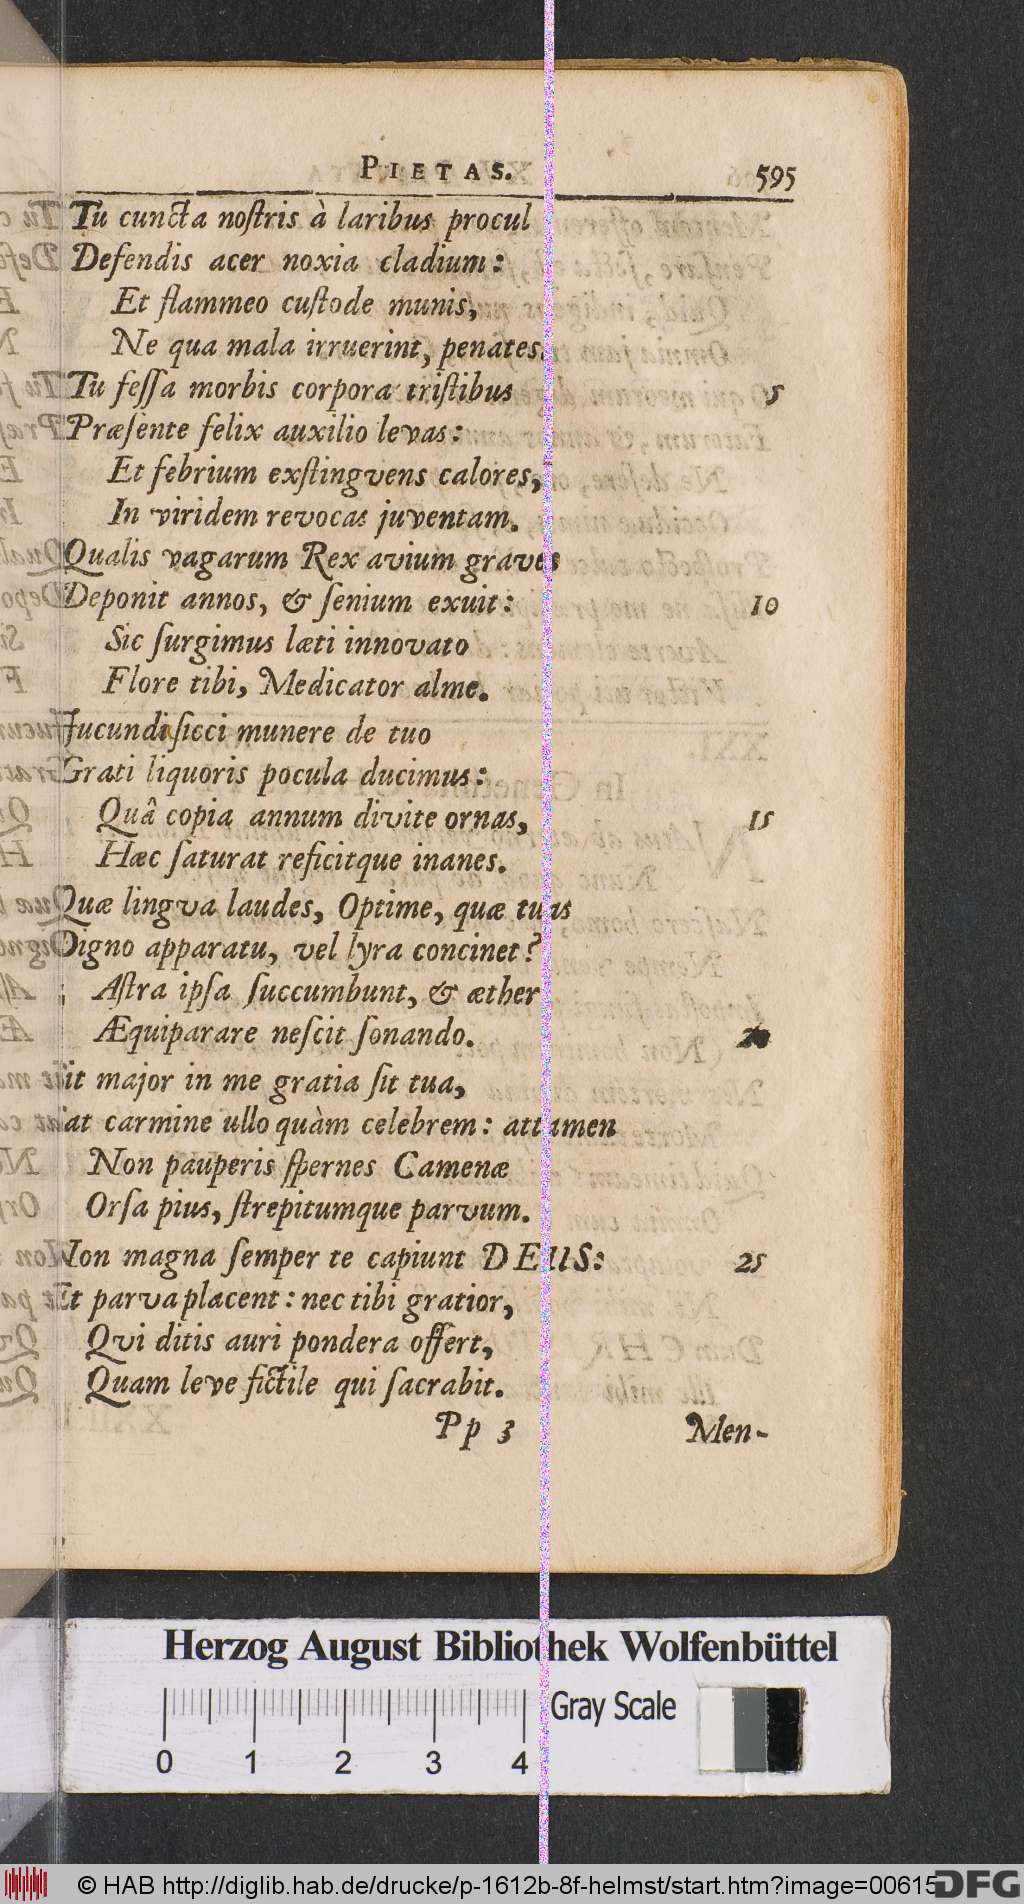 PIETAS. 595
Tu cuncta nostris à laribus procul
Defendis acer noxia cladium:
Et flammeo custode munis,
Ne qua mala irruerint, penates.
Tu fessa morbis corpora tristibus 5
Præsente felix auxilio levas:
Et febrium exstingvens calores,
In viridem revocas juventam.
Qualis vagarum Rex avium graves
Deponit annos, & senium exuit: 10
Sic surgimus læti innovato
Flore tibi, Medicator alme.
Jucundi sicci munere de tuo
Grati liquoris pocula ducimus:
Quâ copia annum divite ornas, 15
Hæc saturat reficitque inanes.
Quæ lingva laudes, Optime, quæ tuas
Digno apparatu, vel lyra concinet?
Astra ipsa succumbunt, & æther
Æquiparare nescit sonando. 20
major in me gratia sit tua,
carmine ullo quàm celebrem: attamen
Non pauperis spernes Camenæ
Orsa pius, strepitumque parvum.
Non magna semper te capiunt DEUS: 25
Et parva placent: nec tibi gratior,
Qvi ditis auri pondera offert,
Quam leve fictile qui sacrabit.
Pp 3 Men-
Herzog August Bibliothek Wolfenbüttel
Gray Scale
0 1 2 3 4
© HAB http://diglib.hab.de/drucke/p-1612b-8f-helmst/start.htm?image=00615
DFG